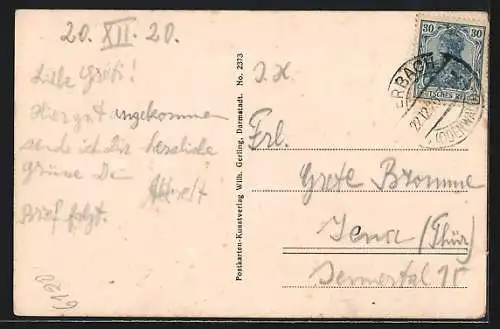 20. XII. 20.
Liebe Greti!
Hier gut angekommen
sende ich Dir herzliche
Grüsse Dein
Brief folgt.
Postkarten-Kunstverlag Wilh. Gerling, Darmstadt. No. 2373
Frl.
Grete Bromme
Jena (Thür)
30 30
DEUTSCHES REICH
ERBACH
(ODENWALD)
6120